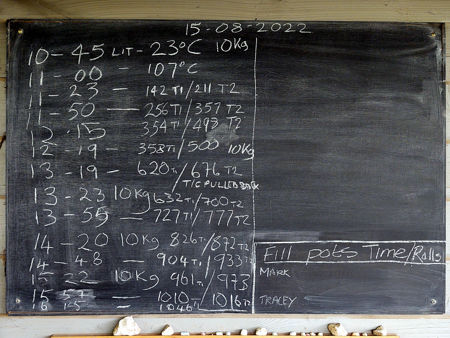 15-08-2022
10-45 LIT-23°C 10Kg
11-00 — 107°C
11-23 — 142 T1/211 T2
11-50 — 256 T1/357 T2
12-15 354 T1/493 T2
12-19 — 358 T1/500 10Kg
13-19 — 620 T1/676 T2
T/C PULLED BACK
13-23 10Kg 632 T1/700 T2
13-55 — 727 T1/777 T2
14-20 10Kg 826 T1/872 T2
14-48 — 904 T1/933 T2
15-22 10Kg 961 T1/973
15 — 1010 T1/1016 T2
16 15 — 1046 T1
Fill pots Time/Rolls
MARK
TRACEY